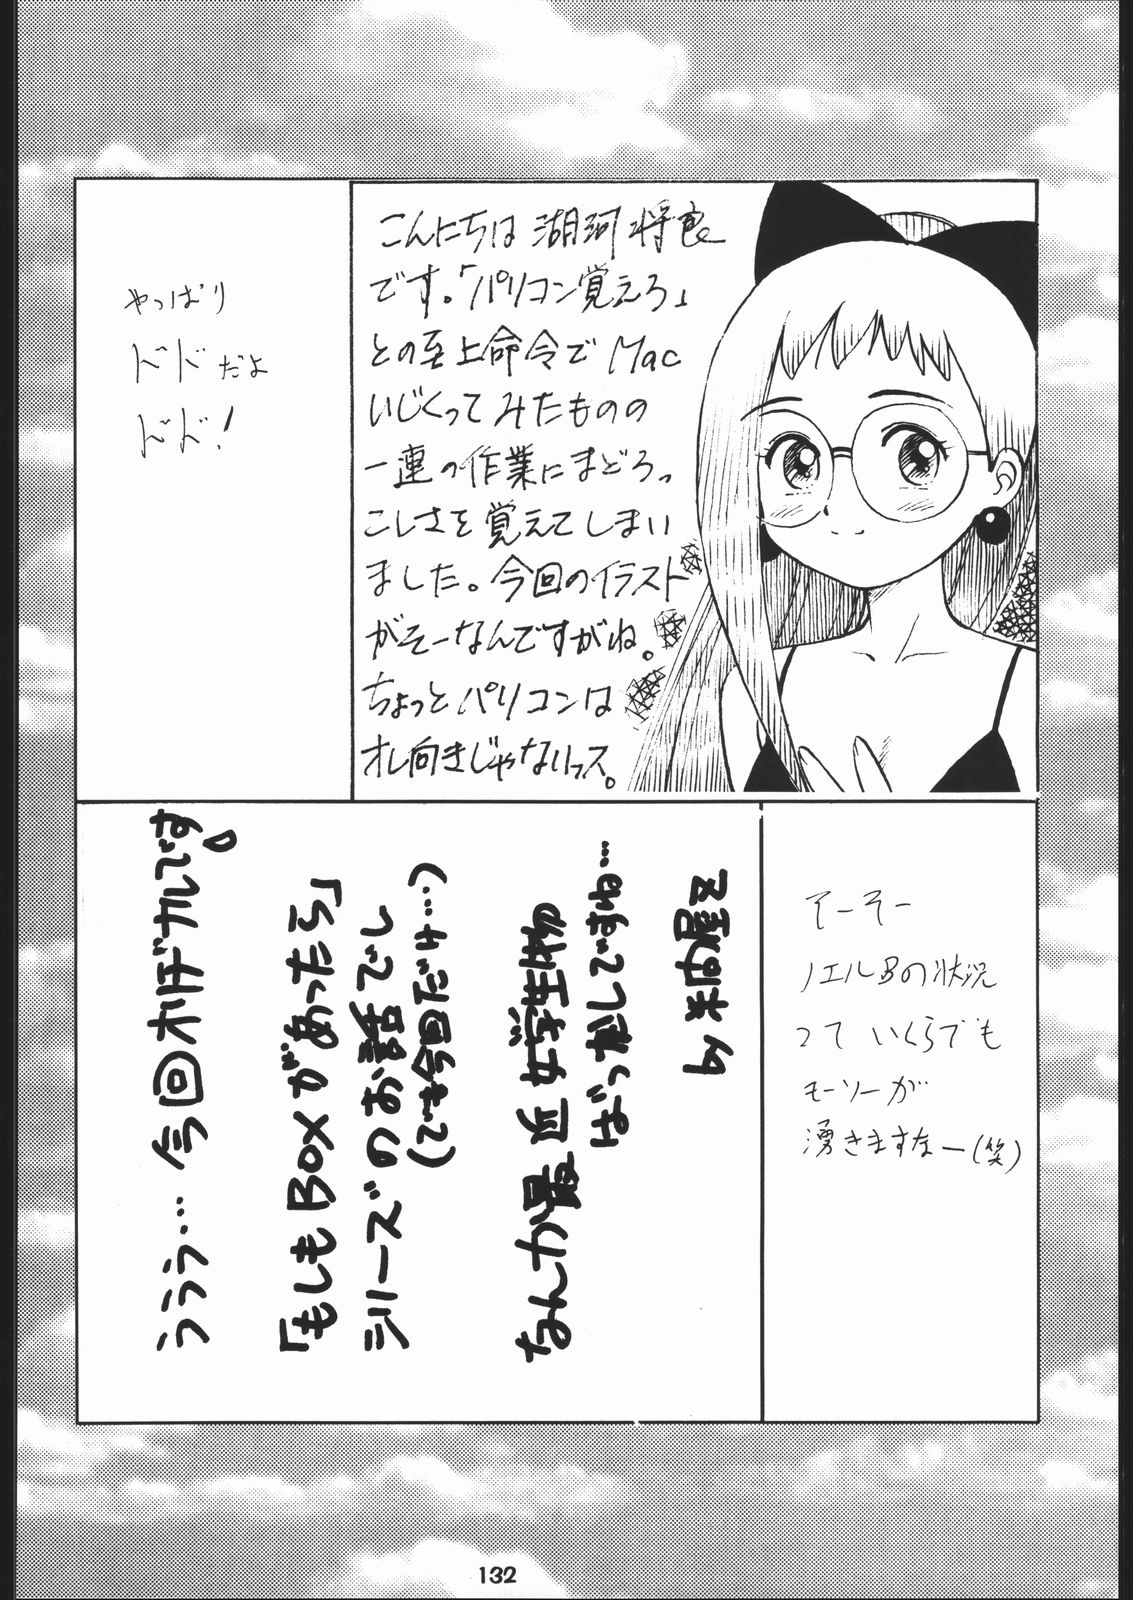 やっぱり
ドドだよ
ドド！
こんにちは 湖河 将良
です。「パソコン覚えろ」
との至上命令で Mac
いじくってみたものの
一連の作業にまどろっ
こしさを覚えてしまい
ました。今回のイラスト
がそーなんですがね。
ちょっとパソコンは
オレ向きじゃないっス。
ううう… 今回オリジナルです
「もしもBOXがあったら」
シリーズのお話でし
(でも今回だけ…)
なんか最近 女学生物
ばっかしですね…
by 米内屋え
そーそー
ノエルBの状況
って いくらでも
モーソーが
湧きますなー(笑)
132